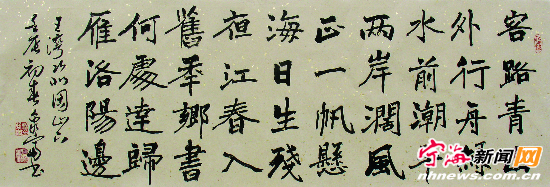 客路青山
外行舟綠
水前潮平
两岸濶風
正一帆懸
海日生殘
夜江春入
舊秊鄉書
何處達歸
雁洛陽邊
王灣次北固山下
壬辰初春
宁海新闻网
nhnews.com.cn